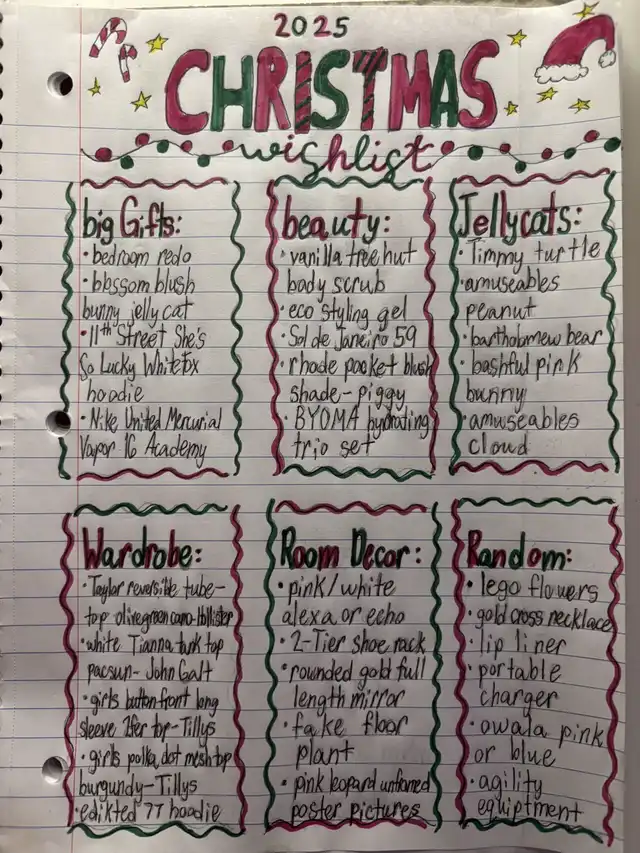 2025
CHRISTMAS
wishlist
big Gifts:
• bedroom redo
• blossom blush
bunny jellycat
• 11th Street She's
So Lucky Whitefox
hoodie
• Nike United Mercurial
Vapor 16 Academy
beauty:
• vanilla tree hut
body scrub
• eco styling gel
• Sol de Janeiro 59
• rhode pocket blush
shade - piggy
• BYOMA hydrating
trio set
Jellycats:
• Timmy turtle
• amuseables
peanut
• bartholomew bear
• bashful pink
bunny
• amuseables
cloud
Wardrobe:
• Taylor reversible tube-
top olive green camo-Hollister
• white Tianna tank top
pacsun - John Galt
• girls button front long
sleeve 2fer top - Tillys
• girls polka dot mesh top
burgundy - Tillys
• edikted 77 hoodie
Room Decor:
• pink/white
alexa or echo
• 2-Tier shoe rack
• rounded gold full
length mirror
• fake floor
plant
• pink leopard unframed
poster pictures
Random:
• lego flowers
• gold cross necklace
• lip liner
• portable
charger
• owala pink
or blue
• agility
equiptment